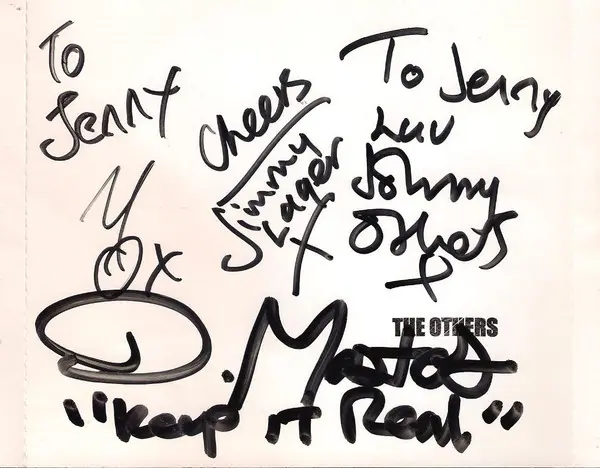 To
Jenny
x
Cheers
Jimmy
Lager
x
To Jenny
Luv
Johnny
Others
x
THE OTHERS
"Keep it Real"